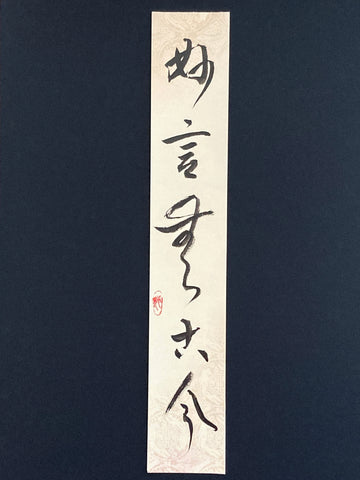 妙言無古今